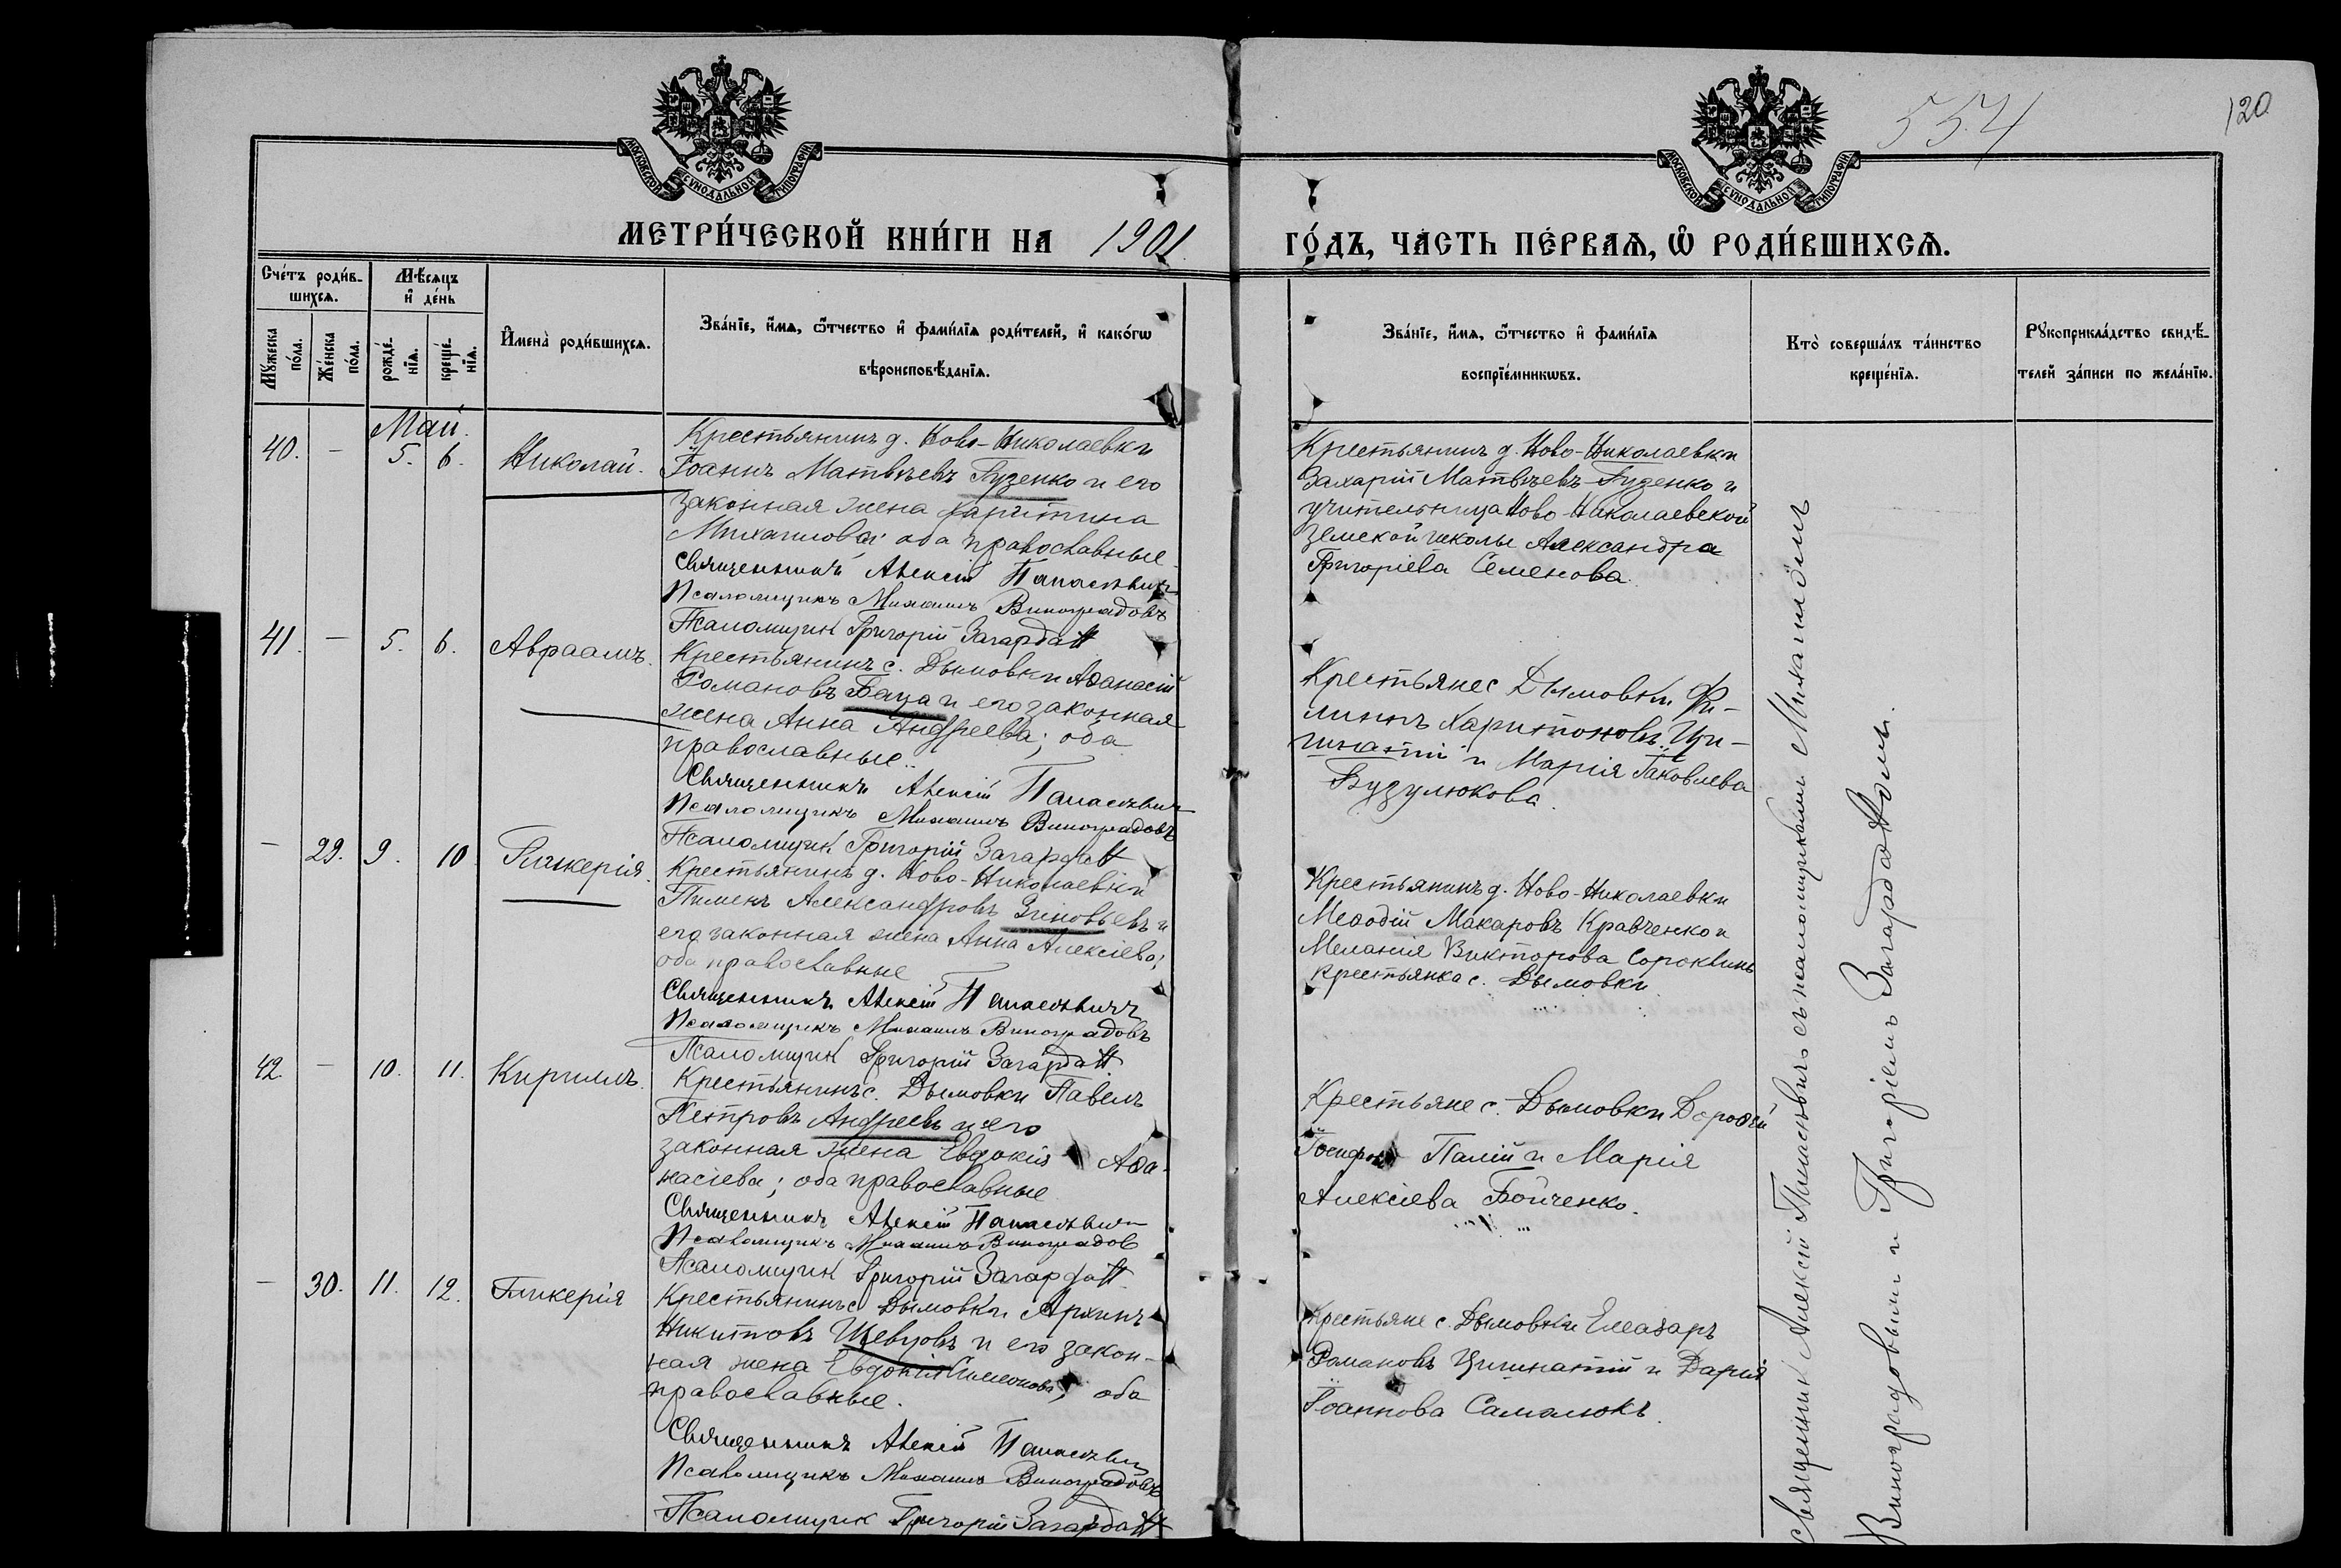 МОСКОВСКОЙ СУНОДАЛЬНОЙ ТИПОГРАФІИ
МОСКОВСКОЙ СУНОДАЛЬНОЙ ТИПОГРАФІИ
554
120
МЕТРИ́ЧЕСКОЙ КНИ́ГИ НА 1901 ГО́ДЪ, ЧА́СТЬ ПЕ́РВАѦ, Ѡ РОДИ́ВШИХСѦ.
Сче́тъ роди́вшихсѧ.
Мꙋ́жеска по́ла.
Же́нска по́ла.
Мѣ́сѧцъ и҆ де́нь
рожде́нїѧ.
креще́нїѧ.
И҆мена̀ роди́вшихсѧ.
Зва́нїе, и҆́мѧ, ѻ҆́тчество и҆ фами́лїѧ роди́телей, и҆ како́гѡ
вѣроисповѣ́данїѧ.
Зва́нїе, и҆́мѧ, ѻ҆́тчество и҆ фами́лїѧ
воспрїе́мникѡвъ.
Кто̀ соверша́лъ та́инство
креще́нїѧ.
Рꙋкоприкла́дство свидѣ́-
телей за́писи по жела́нїю.
Май.
40. — 5. 6. Николай.
Крестьянинъ д. Ново-Николаевки
Іоаннъ Матвѣевъ Гузенко и его
законная жена Харитина
Михаилова; оба православные
Священникъ Алексій Панасевич
Псаломщикъ Михаилъ Виноградовъ
Псаломщик Григорій Загардан
Крестьянинъ д. Ново-Николаевки
Захарій Матвѣевъ Гузенко и
учительница Ново-Николаевской
земской школы Александра
Григоріева Семенова.
41. — 5. 6. Авраамъ.
Крестьянинъ с. Дымовки Аѳанасій
Романовъ Баца и его законная
жена Анна Андреева; оба
православные.
Священникъ Алексій Панасевич
Псаломщикъ Михаилъ Виноградовъ
Псаломщик Григорій Загардан
Крестьяне с. Дымовки Фи-
липпъ Харитоновъ Ци-
гинатій и Марія Іаковлева
Бузулюкова.
— 29. 9. 10. Гликерія.
Крестьянинъ д. Ново-Николаевки
Пименъ Александровъ Зиновьевъ и
его законная жена Анна Алексіева;
оба православные
Священникъ Алексій Панасевичъ
Псаломщикъ Михаилъ Виноградовъ
Псаломщик Григорій Загардан
Крестьянинъ д. Ново-Николаевки
Меѳодій Макаровъ Кравченко и
Меланія Викторова Сороквина
крестьянка с. Дымовки
42. — 10. 11. Кириллъ.
Крестьянинъ с. Дымовки Павелъ
Петровъ Андреевъ и его
законная жена Евдокія Аѳа-
насіева; оба православные
Священникъ Алексій Панасевич
Псаломщикъ Михаилъ Виноградов
Псаломщик Григорій Загардан
Крестьяне с. Дымовки Дороѳей
Іосифовъ Палій и Марія
Алексіева Бойченко.
— 30. 11. 12. Гликерія
Крестьянинъ с. Дымовки Архипъ
Никитовъ Шевцовъ и его закон-
ная жена Евдокія Симеонова; оба
православные.
Священникъ Алексій Панасевич
Псаломщикъ Михаилъ Виноградовъ
Псаломщик Григорій Загардан
Крестьяне с. Дымовки Елеазаръ
Романовъ Цигинатій и Дарія
Іоаннова Самолюкъ.
Священникъ Алексій Панасевичъ съ псаломщиками Михаиломъ
Виноградовымъ и Григоріемъ Загарданомъ.